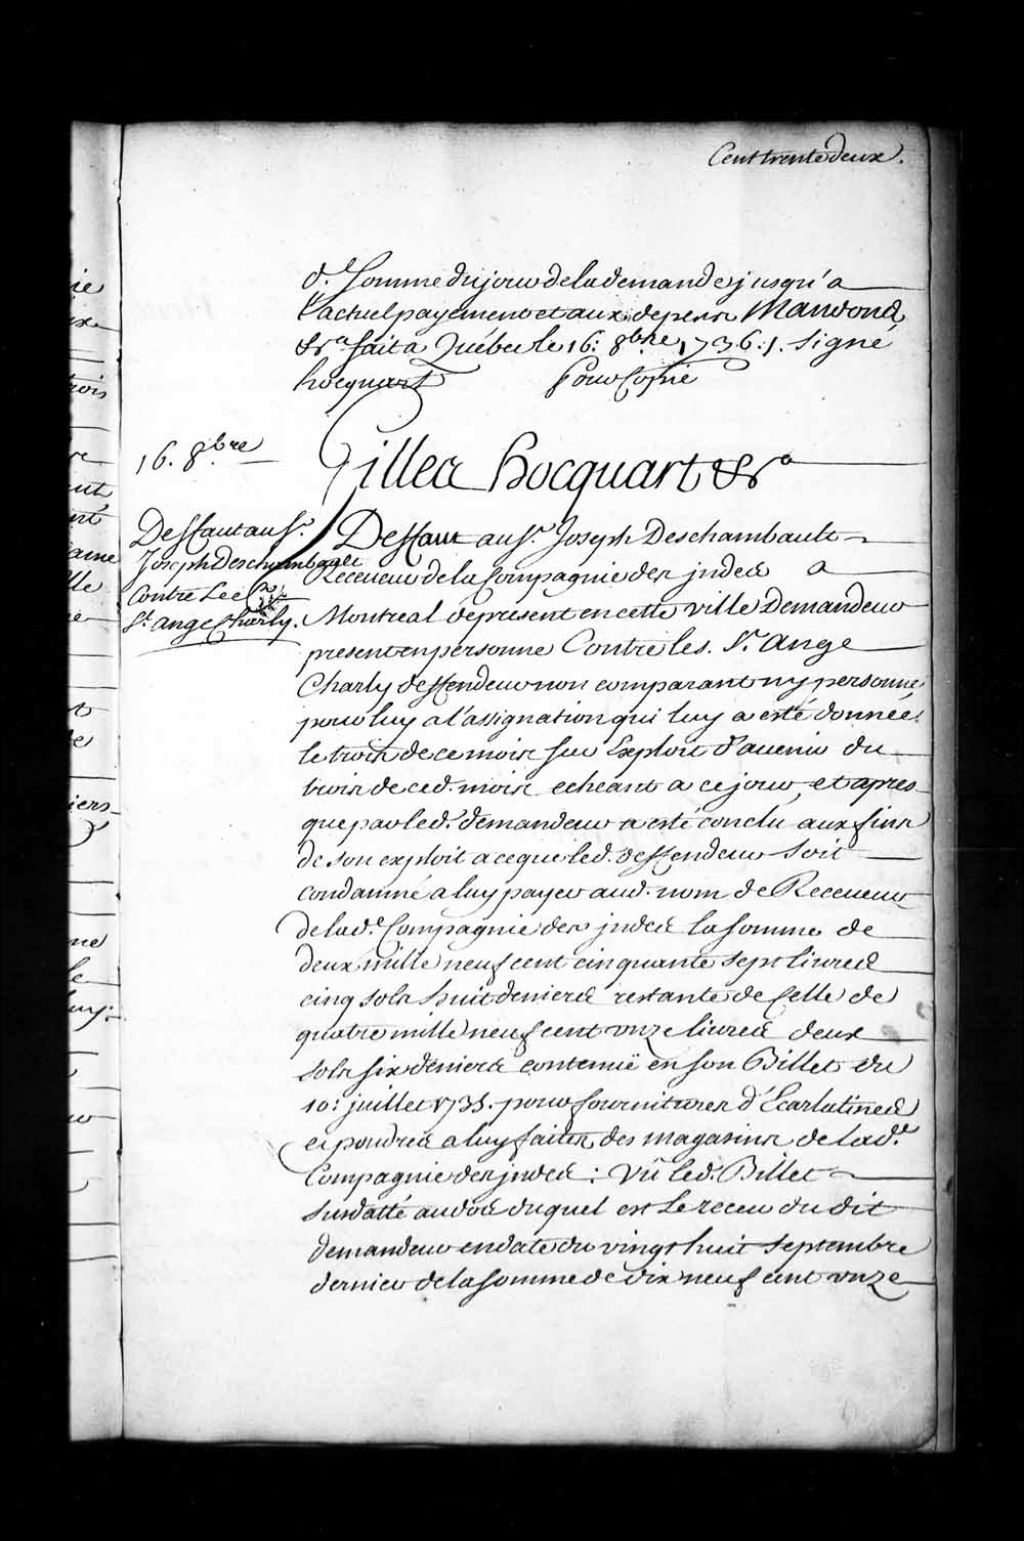 Cent trente deux.
d.e Somme du jour de la demande jusqu'a
l'actuel payement et aux depens Mandons
&ra fait a Quebec le 16: 8bre 1736. Signé
hocquart Pour Copie
16. 8.bre
Gilles Hocquart &ra
Deffaut au Sr.
Joseph Deschambault
Contre Le
St. ange Charly.
Deffaut au Sr. Joseph Deschambault
Receveur de la Compagnie des jndes a
Montreal de present en cette ville Demandeur
present en personne Contre le S.r Ange
Charly deffendeur non comparant ny personne
pour luy a l'assignation qui luy a esté donnée
le trois de ce mois sur Exploit d'avenir du
trois de ced. mois echeant a ce jour, et apres
que par led. demandeur a esté conclu aux fins
de son exploit a ce que led. deffendeur soit
condamné a luy payer aud. nom de Receveur
de lad.e Compagnie des jndes la somme de
deux mille neuf cent cinquante sept livres
cinq sols huit deniers restante de Celle de
quatre mille neuf cent onze livres deux
sols six deniers contenüe en son Billet du
10: juillet 1735. pour fournitures d'Ecarlatines
et poudres a luy faites des magasins de lad.e
Compagnie des jndes: Vû led. Billet
susdatté au dos duquel est le receu du dit
demandeur en date du vingt huit septembre
dernier de la somme de dix neuf cent onze